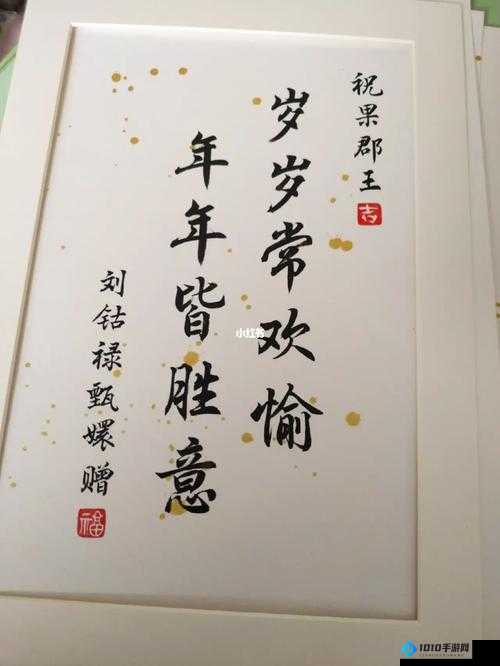 祝果郡王
吉
岁岁常欢愉
年年皆胜意
刘钴禄甄嬛赠
福
小红书
1010手游网